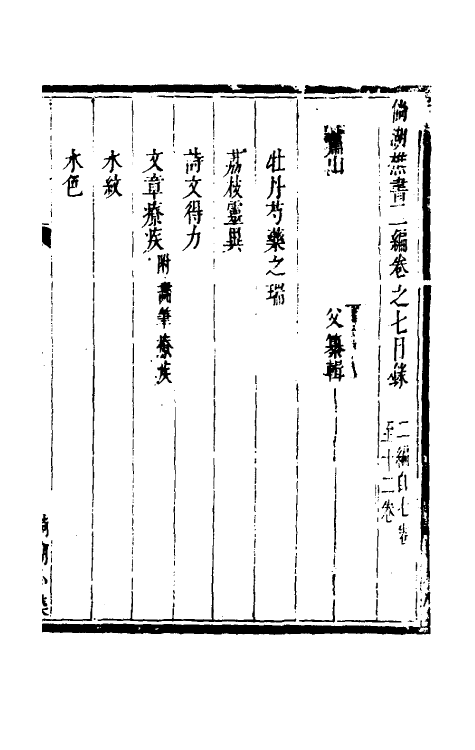 倘湖樵書二編卷之七目錄
二編自七卷
至十二卷
蕭山
父纂輯
牡丹芍藥之瑞
荔枝靈異
詩文得力
文章療疾附畫筆療疾
水紋
水色
倘湖小築